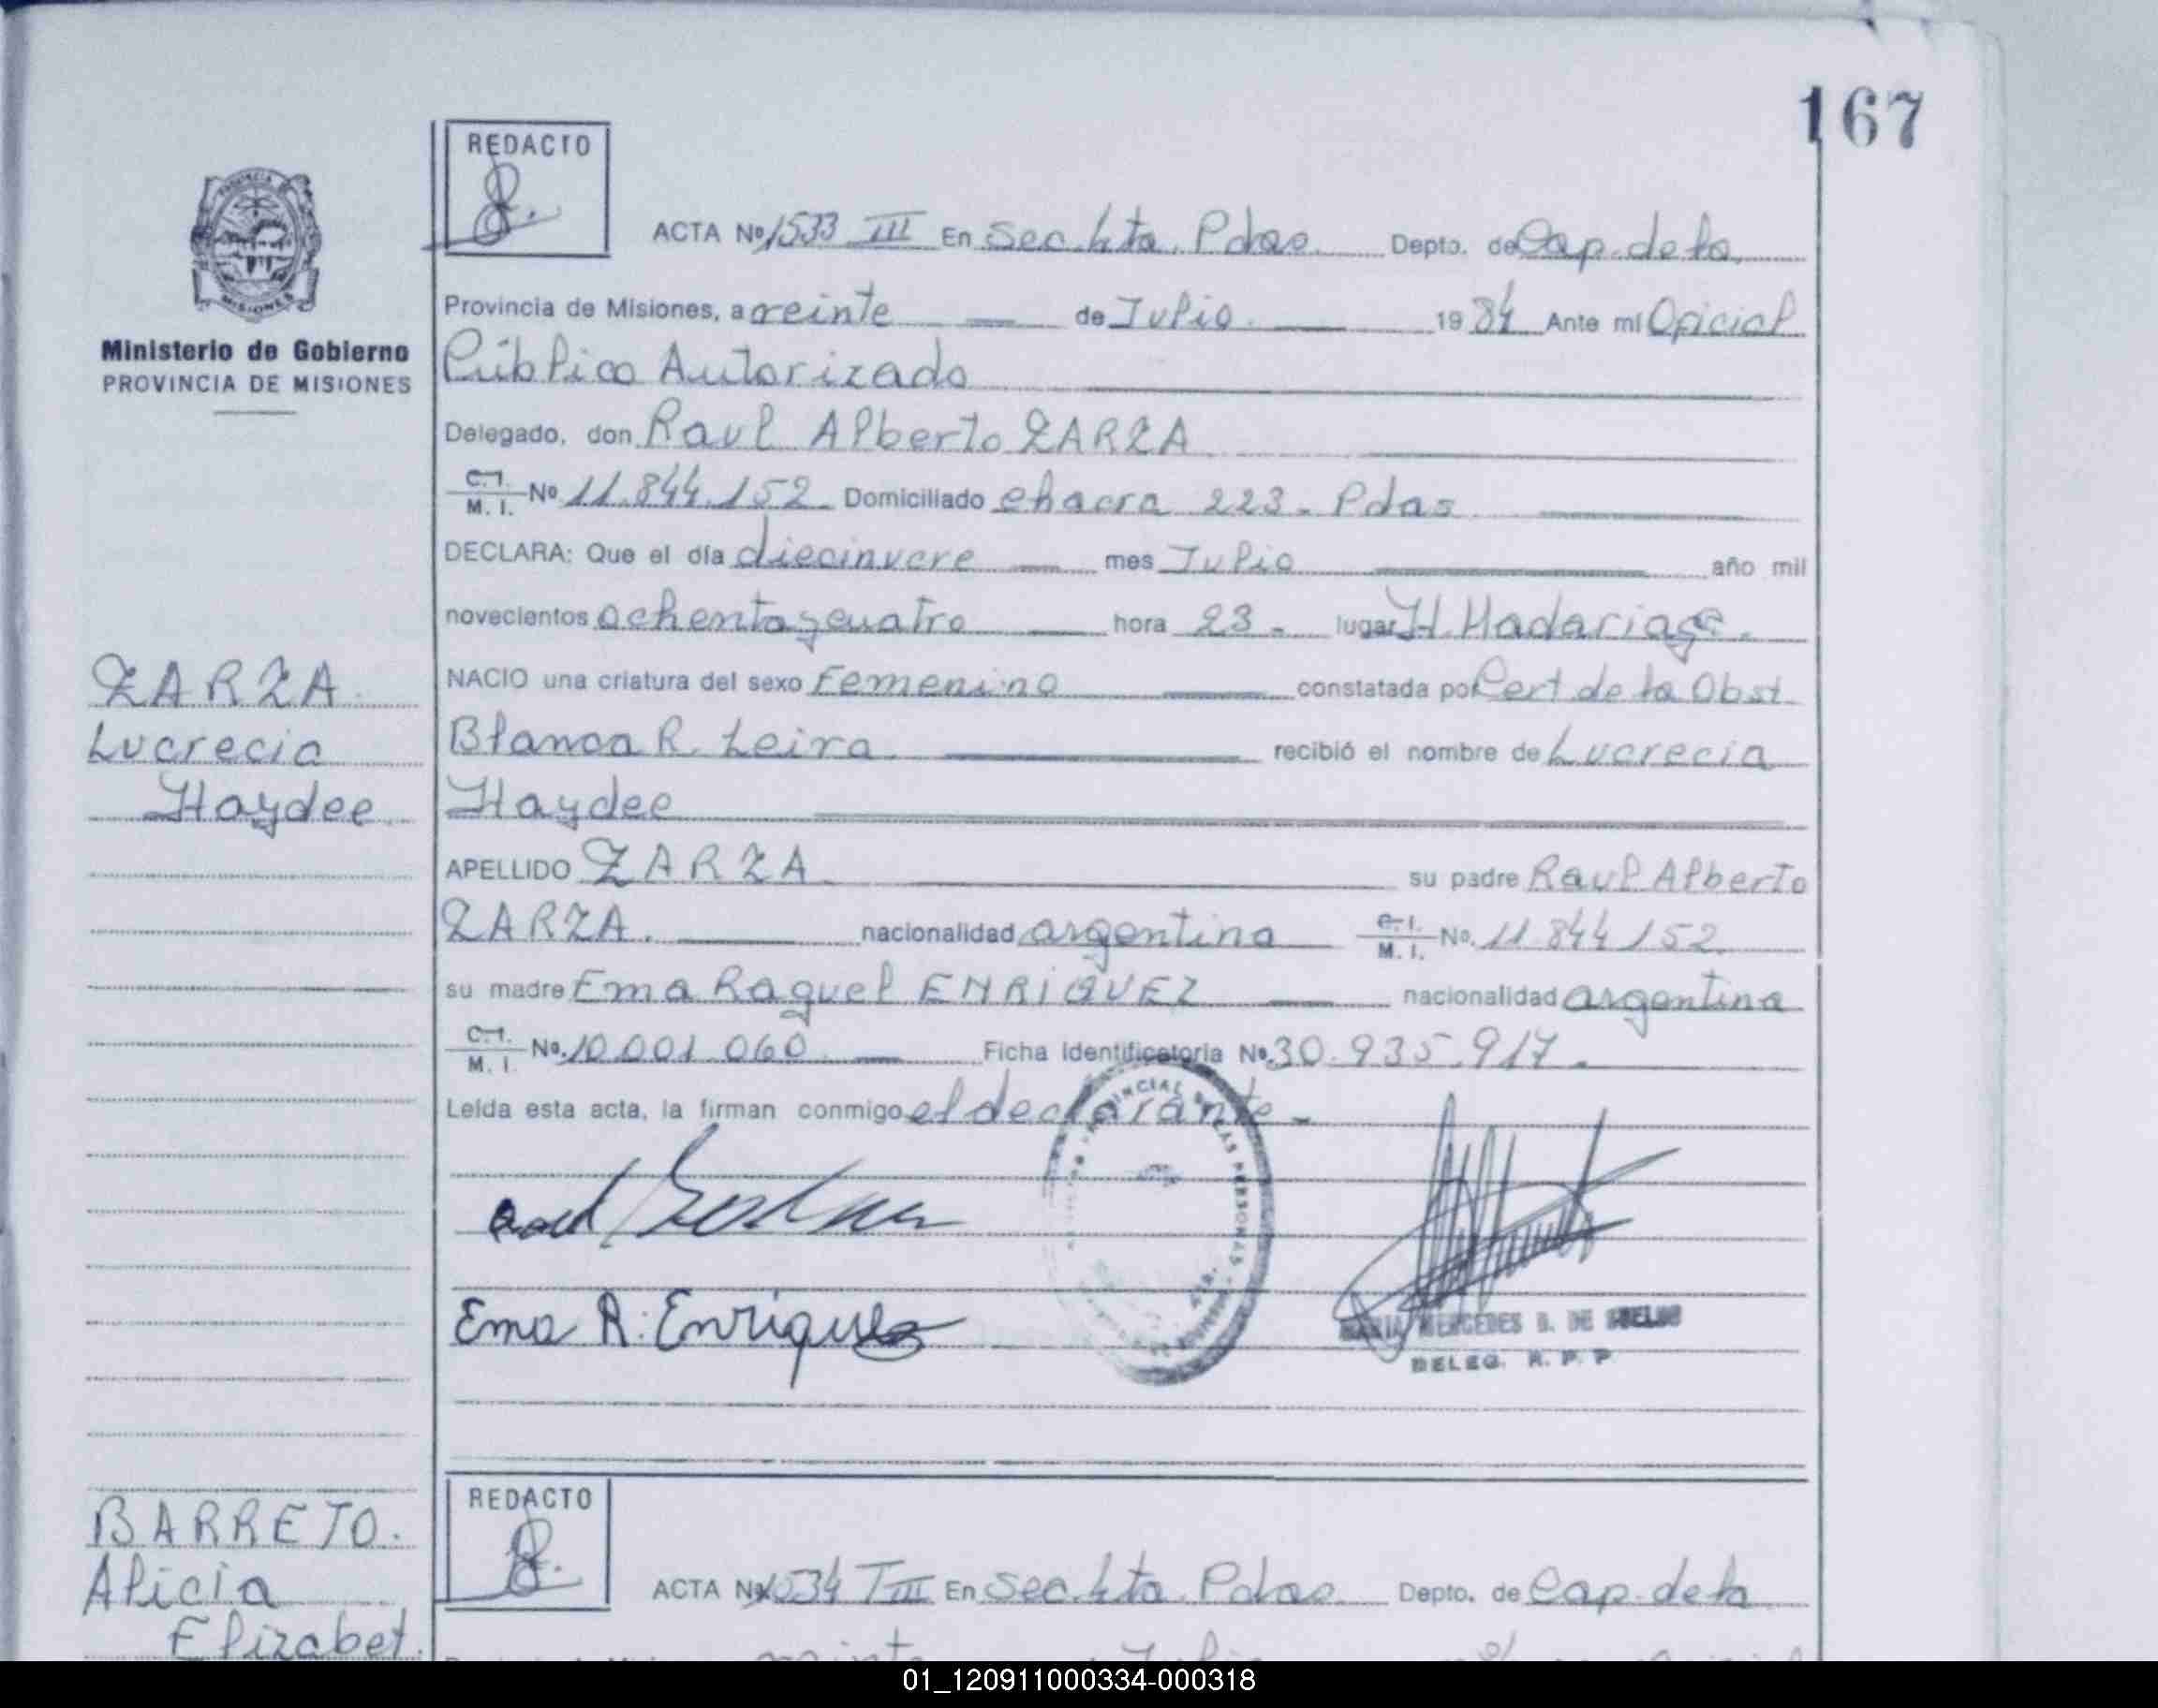 167
REDACTO
ACTA Nº 1533 III En Sec. 4ta. Pdas. Depto. de Cap. de la
Provincia de Misiones, a veinte de Julio 1984 Ante mí Oficial
Ministerio de Gobierno
PROVINCIA DE MISIONES
Público Autorizado
Delegado, don Raul Alberto ZARZA
C.I. M.I. Nº 11.844.152 Domiciliado chacra 223 - Pdas
DECLARA: Que el día diecinueve mes Julio año mil
novecientos ochenta y cuatro hora 23 - lugar H. Madariaga.
ZARZA
NACIO una criatura del sexo Femenino constatada por Cert de la Obst
Lucrecia
Blanca R. Leiva recibió el nombre de Lucrecia
Haydee
Haydee
APELLIDO ZARZA su padre Raul Alberto
ZARZA. nacionalidad argentina C.I. M.I. No. 11.844.152
su madre Ema Raquel ENRIQUEZ nacionalidad argentina
C.I. M.I. No. 10.001.060 Ficha Identificatoria No. 30.935.917.
Leída esta acta, la firman conmigo el declarante -
Ema R. Enriquez
MARIA MERCEDES B. DE
DELEG. R. P. P
REDACTO
BARRETO.
Alicia
ACTA Nº 1534 T III En Sec. 4ta. Pdas. Depto. de Cap. de la
Elizabet.
01_120911000334-000318